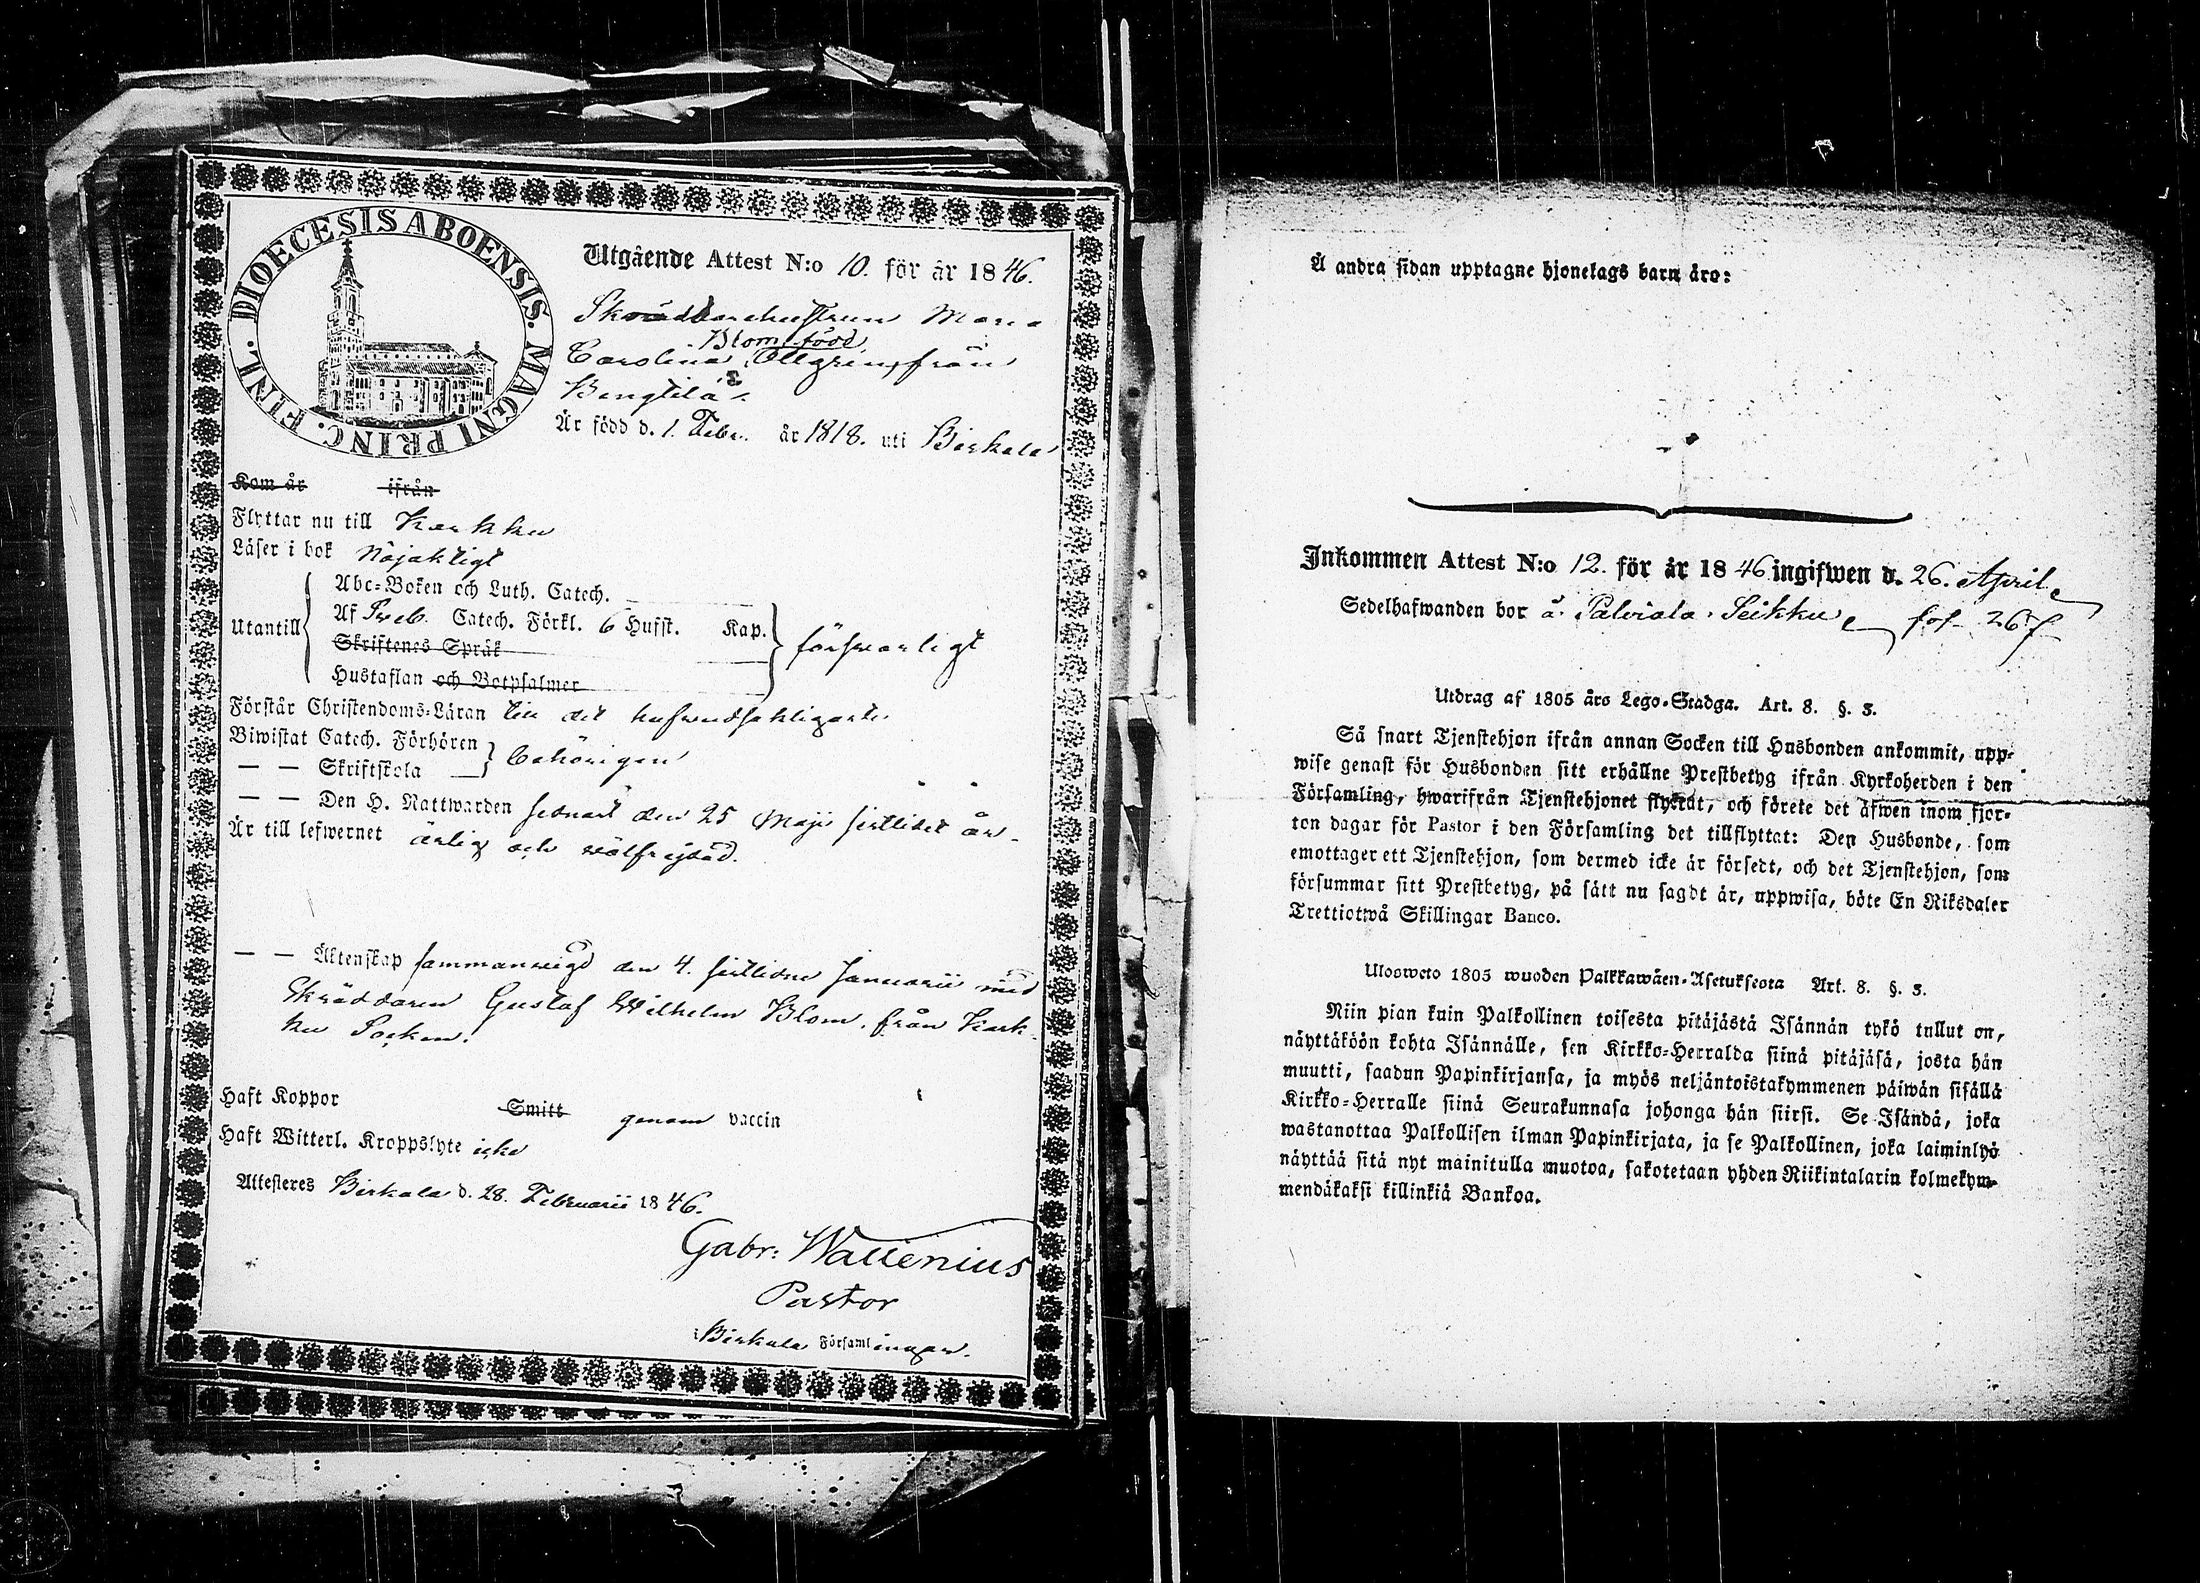 DIOECESIS ABOENSIS. MAGNI PRINC. FINL.
Utgående Attest N:o 10. för år 1846.
Skräddarehustrun Maria
Blom, född
Carolina Ollgren, från
Bengtilä.
Är född d. 1. Febr. år 1818. uti Birkala
Kom år ifrån
Flyttar nu till Karkku
Läser i bok Nöjaktigt
Utantill
Abc-Boken och Luth. Catech.
Af Sveb. Catech. Förkl. 6 Hufst. Kap.
Skriftenes Språk
Hustaflan och Botpsalmer
försvarligt
Förstår Christendoms-Läran till det hufvudsakligaste
Biwistat Catech. Förhören
— — Skriftskola
behörigen
— — Den H. Nattwarden sednast den 25 Maji sistlidet år.
Är till lefwernet ärlig och välfrejdad.
— — Äktenskap sammanvigd den 4. sistlidne Januarii med
Skräddaren Gustaf Wilhelm Blom, från Kark-
ku Socken.
Haft Koppor Smitt genom vaccin
Haft Witterl. Kroppslyte icke
Attesteres Birkala d. 28. Februarii 1846.
Gabr: Wallenius
Pastor
Birkala Församlingar.
Å andra sidan upptagne hjonelags barn äro:
Inkommen Attest N:o 12. för år 1846 ingifwen d. 26. April
Sedelhafwanden bor å Palviala Seikku fol 267
Utdrag af 1805 års Lego-Stadga. Art. 8. §. 3.
Så snart Tjenstehjon ifrån annan Socken till Husbonden ankommit, upp-
wise genast för Husbonden sitt erhållne Prestbetyg ifrån Kyrkoherden i den
Församling, hwarifrån Tjenstehjonet flyttat, och förete det äfwen inom fjor-
ton dagar för Pastor i den Församling det tillflyttat: Den Husbonde, som
emottager ett Tjenstehjon, som dermed icke är försedt, och det Tjenstehjon, som
försummar sitt Prestbetyg, på sätt nu sagdt är, uppwisa, böte En Riksdaler
Trettiotwå Skillingar Banco.
Ulosweto 1805 wuoden Palkkawäen-Asetuksesta Art. 8. §. 3.
Niin pian kuin Palkollinen toisesta pitäjästä Isännän tykö tullut on,
näyttäköön kohta Isännälle, sen Kirkko-Herralda siinä pitäjäsä, josta hän
muutti, saadun Papinkirjansa, ja myös neljäntoistakymmenen päiwän sisällä
Kirkko-Herralle siinä Seurakunnasa johonga hän siirsi. Se Isändä, joka
wastanottaa Palkollisen ilman Papinkirjata, ja se Palkollinen, joka laiminlyö
näyttää sitä nyt mainitulla muotoa, sakotetaan yhden Riikintalarin kolmekym-
mendäkaksi killinkiä Bankoa.